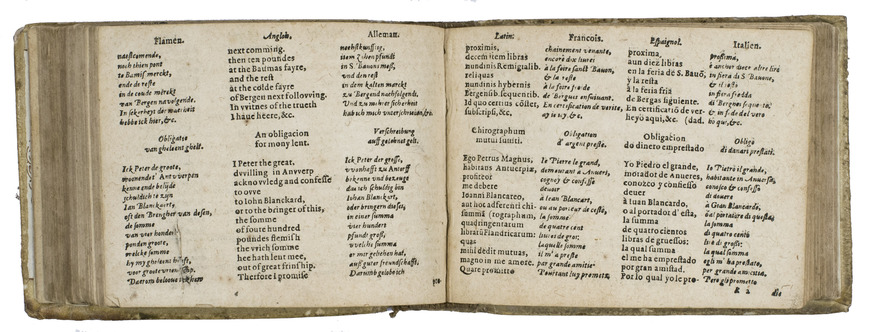 Flamen.
naestcomende,
noch thien pont
te Bamis merckt,
ende de reste
in de coude merckt
van Bergen navolgende.
In sekerheyt der waerheit
hebbe ick hier, &c.
Obligatie
van gheleent ghelt.
Ick Peter de groote,
woonende t' Antwerpen
kenne ende belijde
schuldich te zijn
Ian Blanckaert,
oft den Brengher van desen,
de somme
van vier hondert
ponden groote,
welcke somme
hy my gheleent heeft,
voor groote vrientschap.
Daerom beloove
Anglois.
next comming.
then ten poundes
at the Baumas fayre,
and the rest
at the colde fayre
of Bergen next follovving.
In vvitnes of the trueth
I haue heere, &c.
An obligacion
for mony lent.
I Peter the great,
dvvilling in Anvverp
acknovvledg and confesse
to ovve
to Iohn Blanckard,
or to the bringer of this,
the somme
of foure hundred
poundes flemish
the vvich somme
hee hath lent mee,
out of great frinship.
Therfore I promise
Alleman.
nechstkunfftig,
item Zehen pfundt
in S. Bavons mess,
vnd den rest
in dem kalten marckt
zu Bergend nachfolgende,
Und zu mehrer sicherheit
Verschreibung
auff geleinet gelt.
Ick Peter der grosse,
vvonhafft zu Antorff
bekenne vnd bezeuge
das ich schuldig bin
Iohan Blanckart,
oder bringern dieses,
in einer summa
vier hundert
pfundt gross,
vvelche summa
er mir geliehen hat,
auss guter freundschafft,
Darumb gelobe ich
Latin.
proximis,
decem item libras
nundinis Remigialib.
reliquas
nundinis hybernis
Bergensib. sequentib.
Id quo certius cõstet,
subscripsi, &c.
Chirographum
mutui sumti.
Ego Petrus Magnus,
habitans Antuerpiæ,
profiteor
me debere
Ioanni Blancateo,
aut hoc adferenti chi-
rographum,
summã
quadringentarum
librarũ Flandricarum:
quas
mihi dedit mutuas,
magno in me amore.
Quare promitto
Francois.
chainement venante,
encore dix livres
à la foire sainct Bauon,
& la reste
à la foire froide
de Bergues ensuivant.
En certification de verité,
ay ie icy, &c.
Obligation
d' argent presté.
Ie Pierre le grand,
demeurant a Anvers,
cognoy & confesse
devoir
à Iean Blancart,
ou au porteur de ceste,
la somme
de quatre cent
livres de gros:
laquelle somme
il m' a presté
par grande amitié
Pourtant luy promets
Espaignol.
proxima,
aun diez libras
en la feria dè S. Bauõ,
y la resta
à la feria fria
de Bergas siguiente.
En certificatiõ de ver-
heyò aquì, &c. (dad.
Obligaciòn
do dinero emprestado
Yo Piedro el grande,
morador de Anueres,
conozco y confiesso
deuer
à Iuan Blancardo,
o al portador d' esta,
la summa
de quatro cientos
libras de gruessos:
la qual summa
el me ha emprestado
por gran amistad.
Por lo qual yo le pro-
Italien.
prossima,
è anchor dieci altre lire
in fiera di S. Bauone,
& il resto
in fiera fredda
di Bergues
& in fede del vero
ho quì, &c.
Obligo
di danari prestati.
Io Pietro il grande,
habitante in Anuersa,
conosco & confesso
di douere
à Gian Blancardo,
ò al portatore di questa,
la somma
di quatro cento
lire di grossi:
la qual somma
egli m' ha prestato,
per grande amicitia.
Però gli prometto
& 2